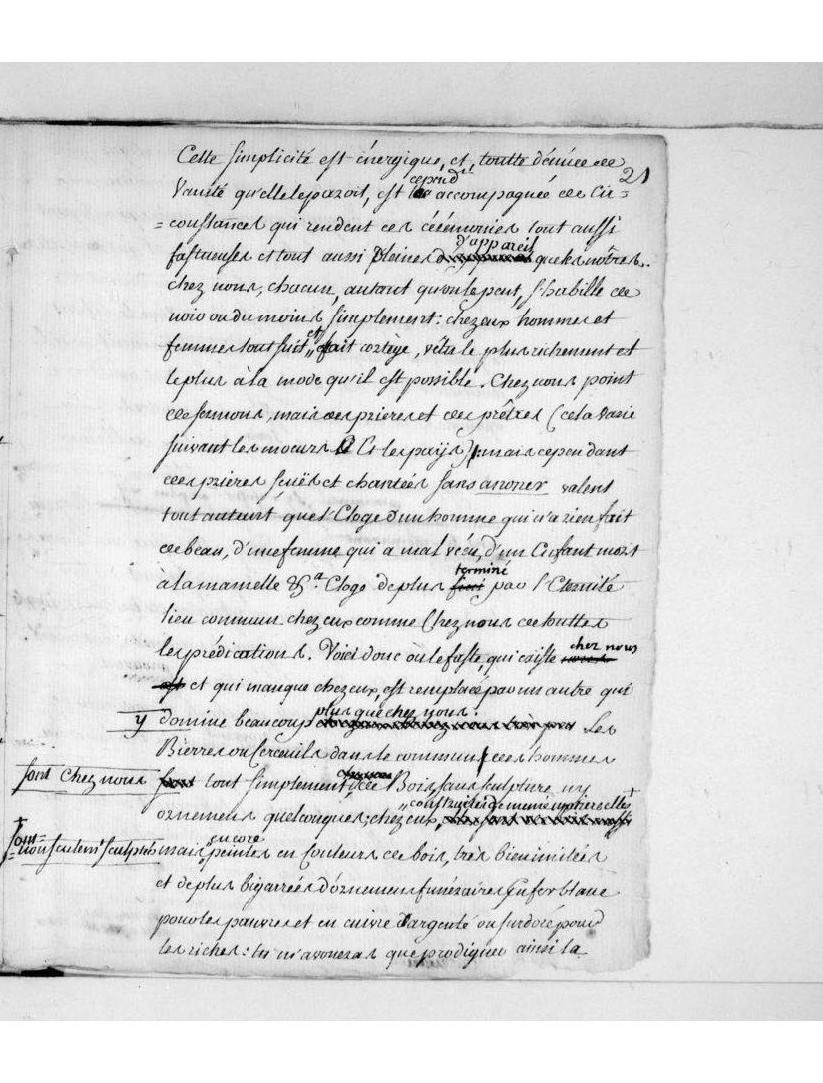 21
Cette simplicité est énergique, et, toutte dénuée de
cepend.t
Vanité qu'elle le paroit, est accompagnée de Cir=
=constances qui rendent ces cérémonies tout aussi
d'appareil
fastueuses et tout aussi pleines que les nôtres.
Chez nous, chacun, autant qu'on le peut, s'habille de
noir ou du moins simplement: chez eux hommes et
et
femmes tout suit, fait cortège, vêtu le plus richement et
le plus à la mode qu'il est possible. Chez nous point
de sermons, mais des prieres et des prêtres (cela varie
suivant les moeurs Et les païs): mais cependant
des prières luës et chantées sans anoner valent
tout autant que l'Eloge d'un homme qui n'a rien fait
de beau, d'une femme qui a mal vécu, d'un Enfant mort
terminé
à la mamelle &.a Eloge de plus fini par l'Eternité
lieu commun chez eux comme Chez nous de touttes
chez nous
les prédications. Voici donc où le faste, qui existe
et qui manque chez eux, est remplacé par un autre qui
plus que chez nous:
y domine beaucoup Les
Bierres ou Cercueils dans le commun des hommes
sont chez nous
sont tout simplement de Bois sans sculpture ny
construites de même matiere elles +
ornemens quelconques; chez eux,
+ sont
non seulem.t sculptés
encore
mais peintes en Couleurs de bois, très bien imitées
et de plus bigarrées d'ornemens funéraires En fer blanc
pour les pauvres et en cuivre argenté ou surdoré pour
les riches: tu m'avoueras que prodiguer ainsi la